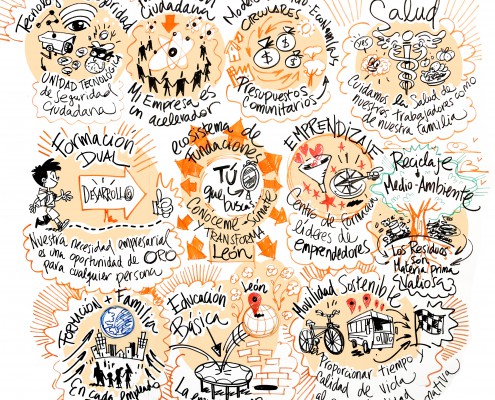 Seguridad
UNIDAD TECNOLÓGICA
de Seguridad
Ciudadana
Ciudadana
Mi Empresa es
un acelerador
CIRCULARES
Presupuestos
Comunitarios
Salud
SOS
Cuidamos la Salud de
nuestros trabajadores como
de nuestra familia
FORMACIÓN
DUAL
DESARROLLO
Nuestra necesidad empresarial
es una oportunidad de ORO
para cualquier persona
ecosistema de
Fundaciones
TÚ
qué
buscas
CONÓCEME - Súmate
TRANSFORMA
León
EMPRENDIZAJE
Centro de formación
líderes de
emprendedores
Reciclaje
Medio-Ambiente
Los Residuos
son
Materia Prima
Valiosa
FORMACIÓN + Familia
En cada empleado
Educación
Básica
León
Movilidad Sostenible
Proporcionar tiempo y
calidad de vida